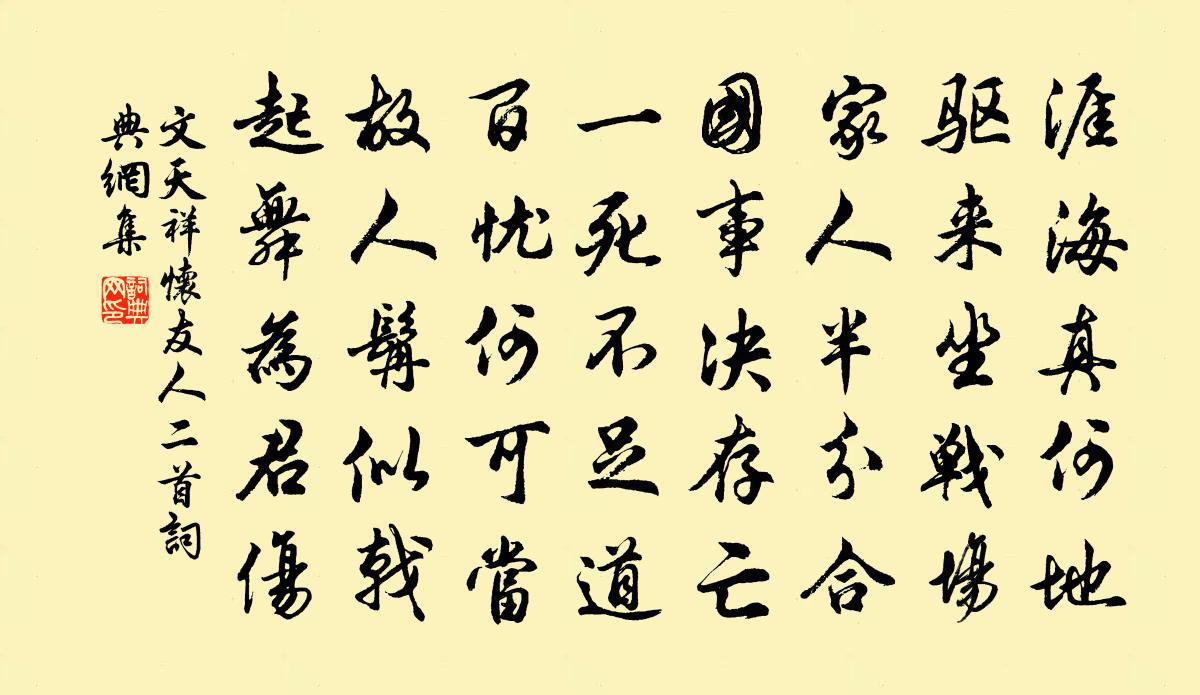 涯海真何地
驱来坐戦場
家人半分合
國事决存亡
一死不足道
百忧何可當
故人髯似戟
起舞為君傷
文天祥懷友人二首詞
典網集
詞典
网印